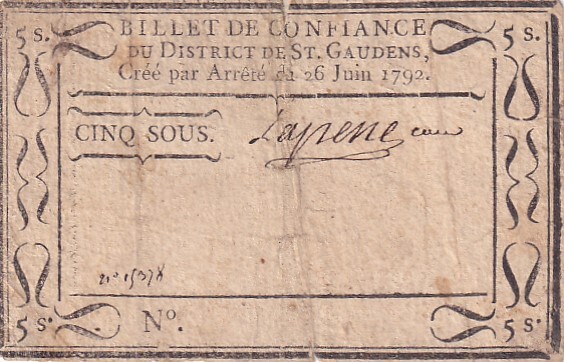 5 S. BILLET DE CONFIANCE 5 S.
DU DISTRICT DE ST. GAUDENS,
Créé par Arrêté du 26 Juin 1792.
CINQ SOUS. Lapene
n° 15378
5 S. N°. 5 S.